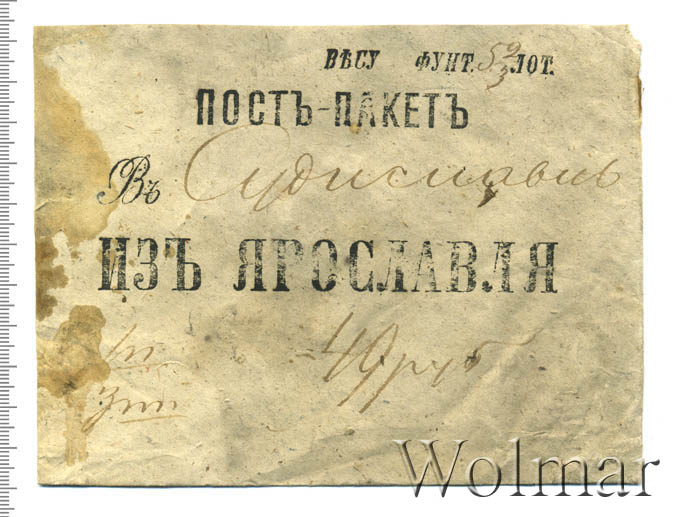 ВѢСУ ФУНТ. 5 2/3 ЛОТ.
ПОСТЪ-ПАКЕТЪ
Въ Судиславль
ИЗЪ ЯРОСЛАВЛЯ
49 руб
Wolmar